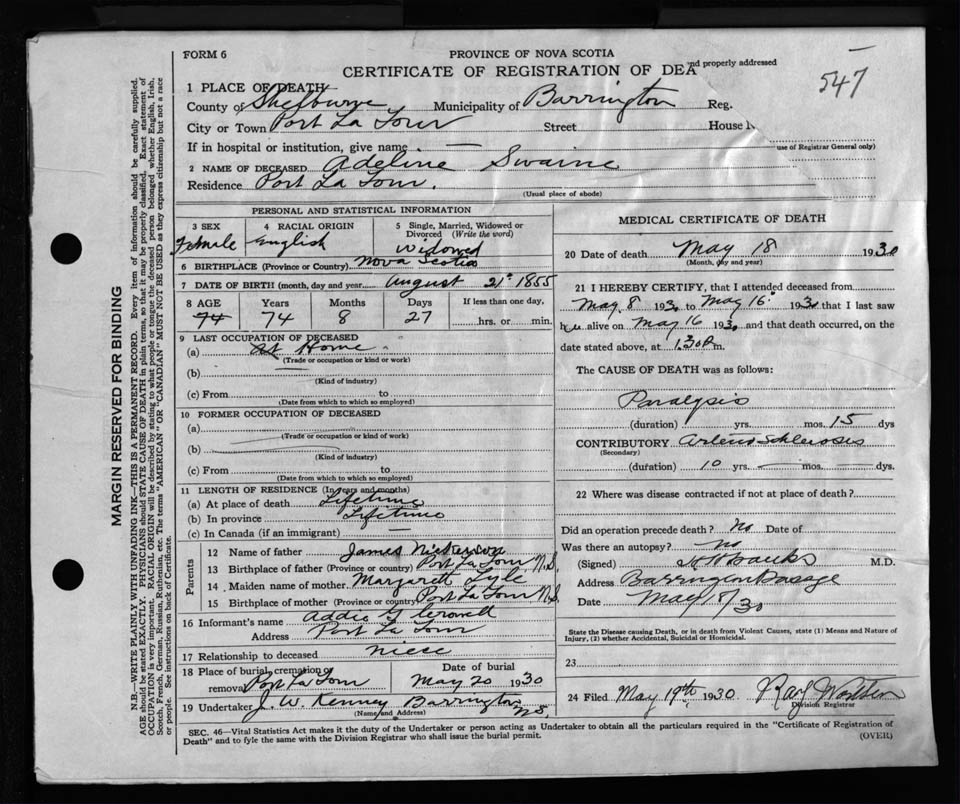 FORM 6
PROVINCE OF NOVA SCOTIA
CERTIFICATE OF REGISTRATION OF DEA
nd properly addressed
547
1 PLACE OF DEATH
County of Shelburne Municipality of Barrington Reg.
City or Town Port La Tour Street House N
If in hospital or institution, give name —
use of Registrar General only)
2 NAME OF DECEASED Adeline Swaine
Residence Port La Tour.
(Usual place of abode)
PERSONAL AND STATISTICAL INFORMATION
3 SEX 4 RACIAL ORIGIN 5 Single, Married, Widowed or Divorced (Write the word)
Female English Widowed
6 BIRTHPLACE (Province or Country) Nova Scotia
7 DATE OF BIRTH (month, day and year) August 21st 1855
8 AGE Years Months Days If less than one day,
74 74 8 27 hrs. or min.
9 LAST OCCUPATION OF DECEASED
(a) At Home
(Trade or occupation or kind or work)
(b)
(Kind of industry)
(c) From to
(Date from which to which so employed)
10 FORMER OCCUPATION OF DECEASED
(a)
(Trade or occupation or kind or work)
(b)
(Kind of industry)
(c) From to
(Date from which to which so employed)
11 LENGTH OF RESIDENCE (In years and months)
(a) At place of death Lifetime
(b) In province Lifetime
(c) In Canada (if an immigrant) —
Parents
12 Name of father James Nickerson
13 Birthplace of father (Province or country) Port La Tour N.S.
14 Maiden name of mother Margarett Lyle
15 Birthplace of mother (Province or country) Port La Tour N.S.
16 Informant's name Addie Crowell
Address Port La Tour
17 Relationship to deceased niese
18 Place of burial, cremation or removal Port La Tour Date of burial May 20 1930
19 Undertaker J. W. Kenney Barrington N.S.
(Name and Address)
MEDICAL CERTIFICATE OF DEATH
20 Date of death May 18 1930
(Month, day and year)
21 I HEREBY CERTIFY, that I attended deceased from
May 8 1930 to May 16 1930 that I last saw
her alive on May 16 1930 and that death occurred, on the
date stated above, at 1.30 P m.
The CAUSE OF DEATH was as follows:
Paralysis
(duration) yrs. mos. 15 dys
CONTRIBUTORY Arterio Schlerosis
(Secondary)
(duration) 10 yrs. — mos. — dys.
22 Where was disease contracted if not at place of death?
Did an operation precede death? No Date of
Was there an autopsy? no
(Signed) H H Banks M.D.
Address Barrington Passage
Date May 18/30
State the Disease causing Death, or in death from Violent Causes, state (1) Means and Nature of
Injury, (2) whether Accidental, Suicidal or Homicidal.
23
24 Filed May 19th 1930
Division Registrar
SEC. 46—Vital Statistics Act makes it the duty of the Undertaker or person acting as Undertaker to obtain all the particulars required in the "Certificate of Registration of
Death" and to fyle the same with the Division Registrar who shall issue the burial permit.
(OVER)
MARGIN RESERVED FOR BINDING
N.B.—WRITE PLAINLY WITH UNFADING INK—THIS IS A PERMANENT RECORD. Every item of information should be carefully supplied.
AGE should be stated EXACTLY. PHYSICIANS should STATE CAUSE OF DEATH in plain terms, so that it may be properly classified. Exact statement of
OCCUPATION is very important. RACIAL ORIGIN will be described by stating to what people or tongue the deceased person belonged whether English, Irish,
Scotch, French, German, Russian, Ruthenian, etc. The terms "AMERICAN" OR "CANADIAN" MUST NOT BE USED as they express citizenship but not a race
or people. See instructions on back of Certificate.